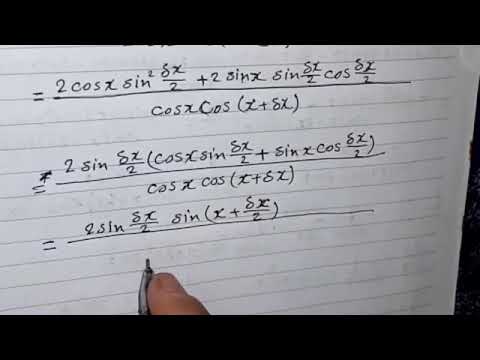 = 2cosx sin² δx/2 + 2 sinx sin δx/2 cos δx/2 / cosx Cos (x+δx)
= 2 sin δx/2 (cosx sin δx/2 + sin x cos δx/2) / cos x cos (x+δx)
= 2sin δx/2 sin(x + δx/2)